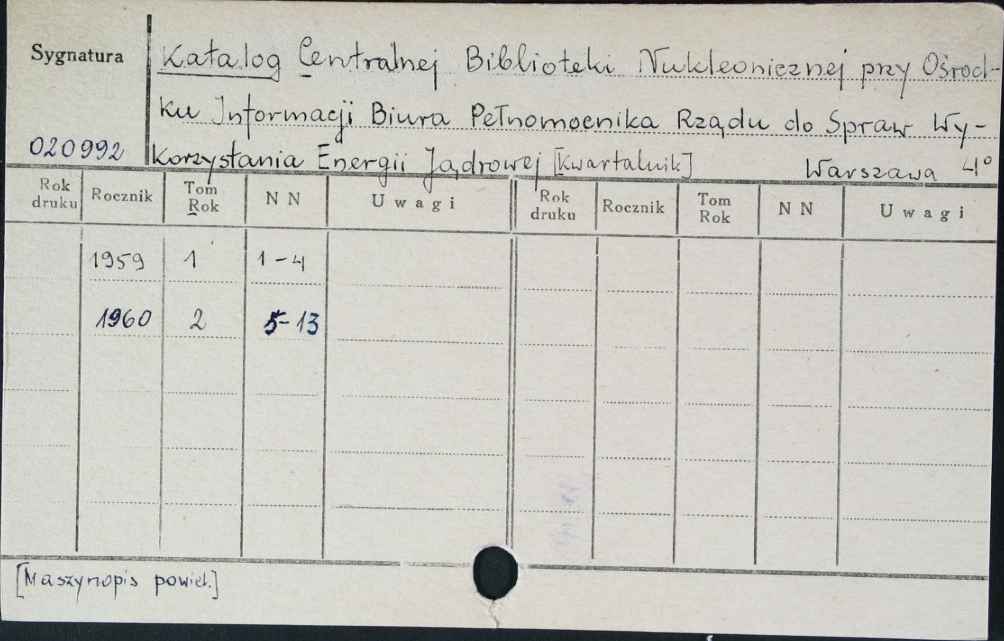 Sygnatura
Katalog Centralnej Biblioteki Nukleonicznej przy Ośrod-
ku Informacji Biura Pełnomocnika Rządu do Spraw Wy-
020992 korzystania Energii Jądrowej [kwartalnik] Warszawa 4°
Rok druku Rocznik Tom Rok N N Uwagi Rok druku Rocznik Tom Rok N N Uwagi
1959 1 1-4
1960 2 5-13
[Maszynopis powiel.]